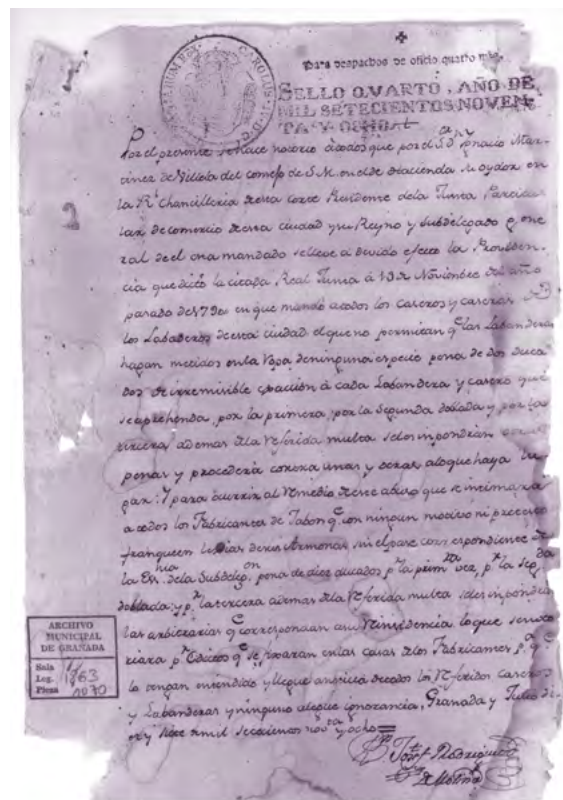 CAROLUS
Para despachos de oficio quatro mrs.
SELLO QVARTO, AÑO DE
MIL SETECIENTOS NOVEN
TA Y OCHO.
Por el presente se hace notorio à todos que por el Sr. Dn. Ygnacio Mar-
tinez de Villela del consejo de S.M. en el de Hacienda su oydor en
la Rl. Chancilleria de esta corte Presidente dela Junta Particu
lar de comercio de esta ciudad y su Reyno y subdelegado gene
ral de el en a mandado se lleve a devido efecto la Providen
cia que dictó la citada Real Junta à 13 de Noviembre del año
pasado de 1790 en que mandó a todos los caseros y caseras de
los Labaderos de esta ciudad el que no permitan qe. las Labanderas
hagan metidos en la ropa de ninguna especie pena de dos duca
dos de irremisible exaccion à cada Labandera y casero que
se aprehenda, por la primera, por la segunda doblada y por la
tercera ademas de la referida multa se les impondrán
penas y procederá contra unas y otras a lo que haya lu
gar: Y para ocurrir al remedio de este abuso que se intimara
a todos los Fabricantes de Jabon qe. con ningun motivo ni pretexto
franqueen lexias de sus Armonas sin el pase correspondiente de
la Essnia. dela Subdelegon. pena de diez ducados pr. la primra. vez, pr. la segda.
doblada; y pr. la tercera ademas de la referida multa se les impondrán
las arbitrarias qe. correspondan a su reinsidencia lo que se noti
ciara pr. Edictos qe. se fixaran en las casas de los Fabricantes pa. qe.
lo tengan entendido y llegue a noticia de todos los referidos caseros
y Labanderas y ninguno alegue ignorancia, Granada y Julio di
ez y siete de mil setecientos novta. y ocho
Josef Rodriguez
de Molina
ARCHIVO
MUNICIPAL
DE GRANADA
Sala
Leg. 1863
Pieza 1070